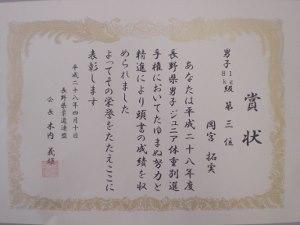 賞状
男子81kg級 第三位
岡宮 拓実
あなたは平成二十八年度
長野県男子ジュニア体重別選
手権においてたゆまぬ努力と
精進により頭書の成績を収
められました
よってその栄誉をたたえここに
表彰します
平成二十八年四月十日
長野県柔道連盟
会長 木内 義雄